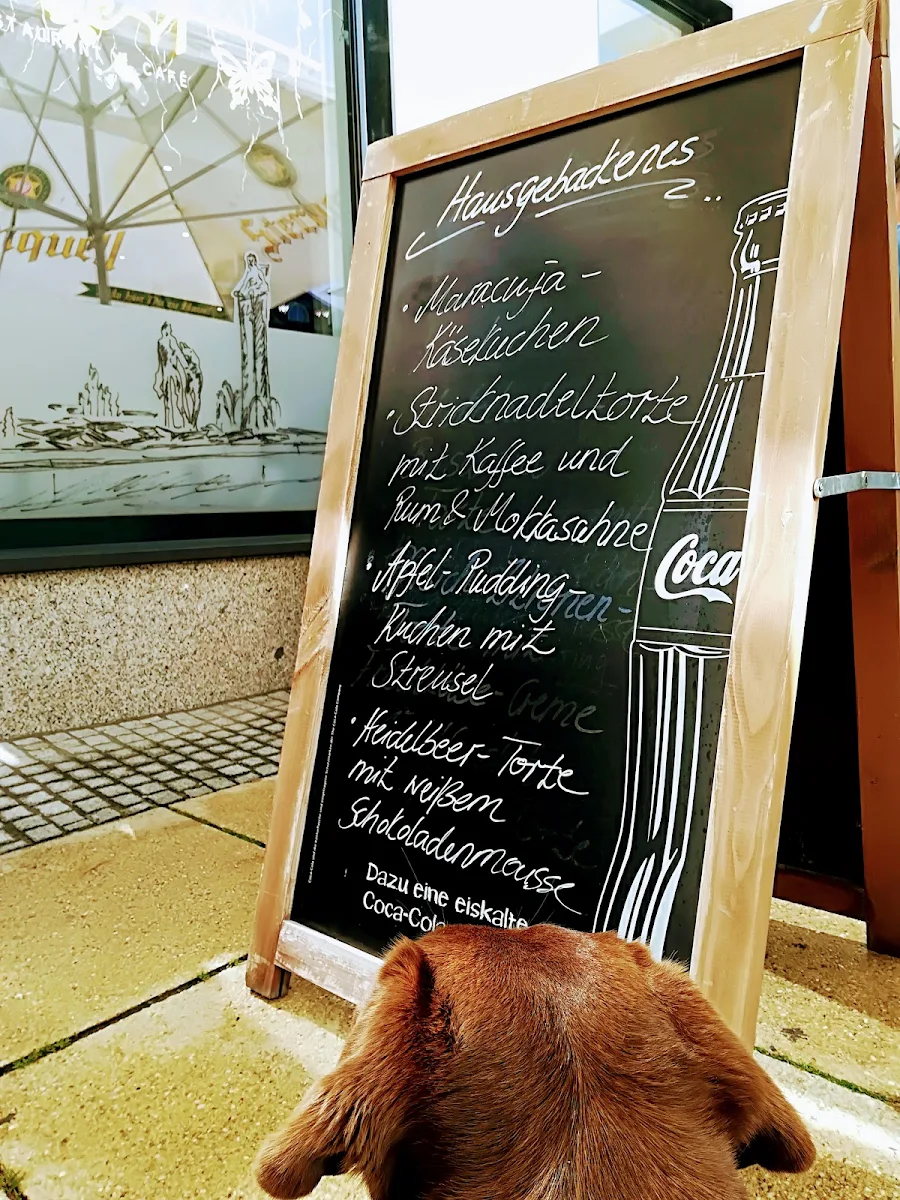 CAFÉ
Hausgebackenes ..
• Maracuja-
Käsekuchen
• Stricknadeltorte
mit Kaffee und
Rum & Mokkasahne
• Apfel-Pudding-
Kuchen mit
Streusel
• Heidelbeer-Torte
mit weißem
Schokoladenmousse
Dazu eine eiskalte
Coca-Cola
Coca